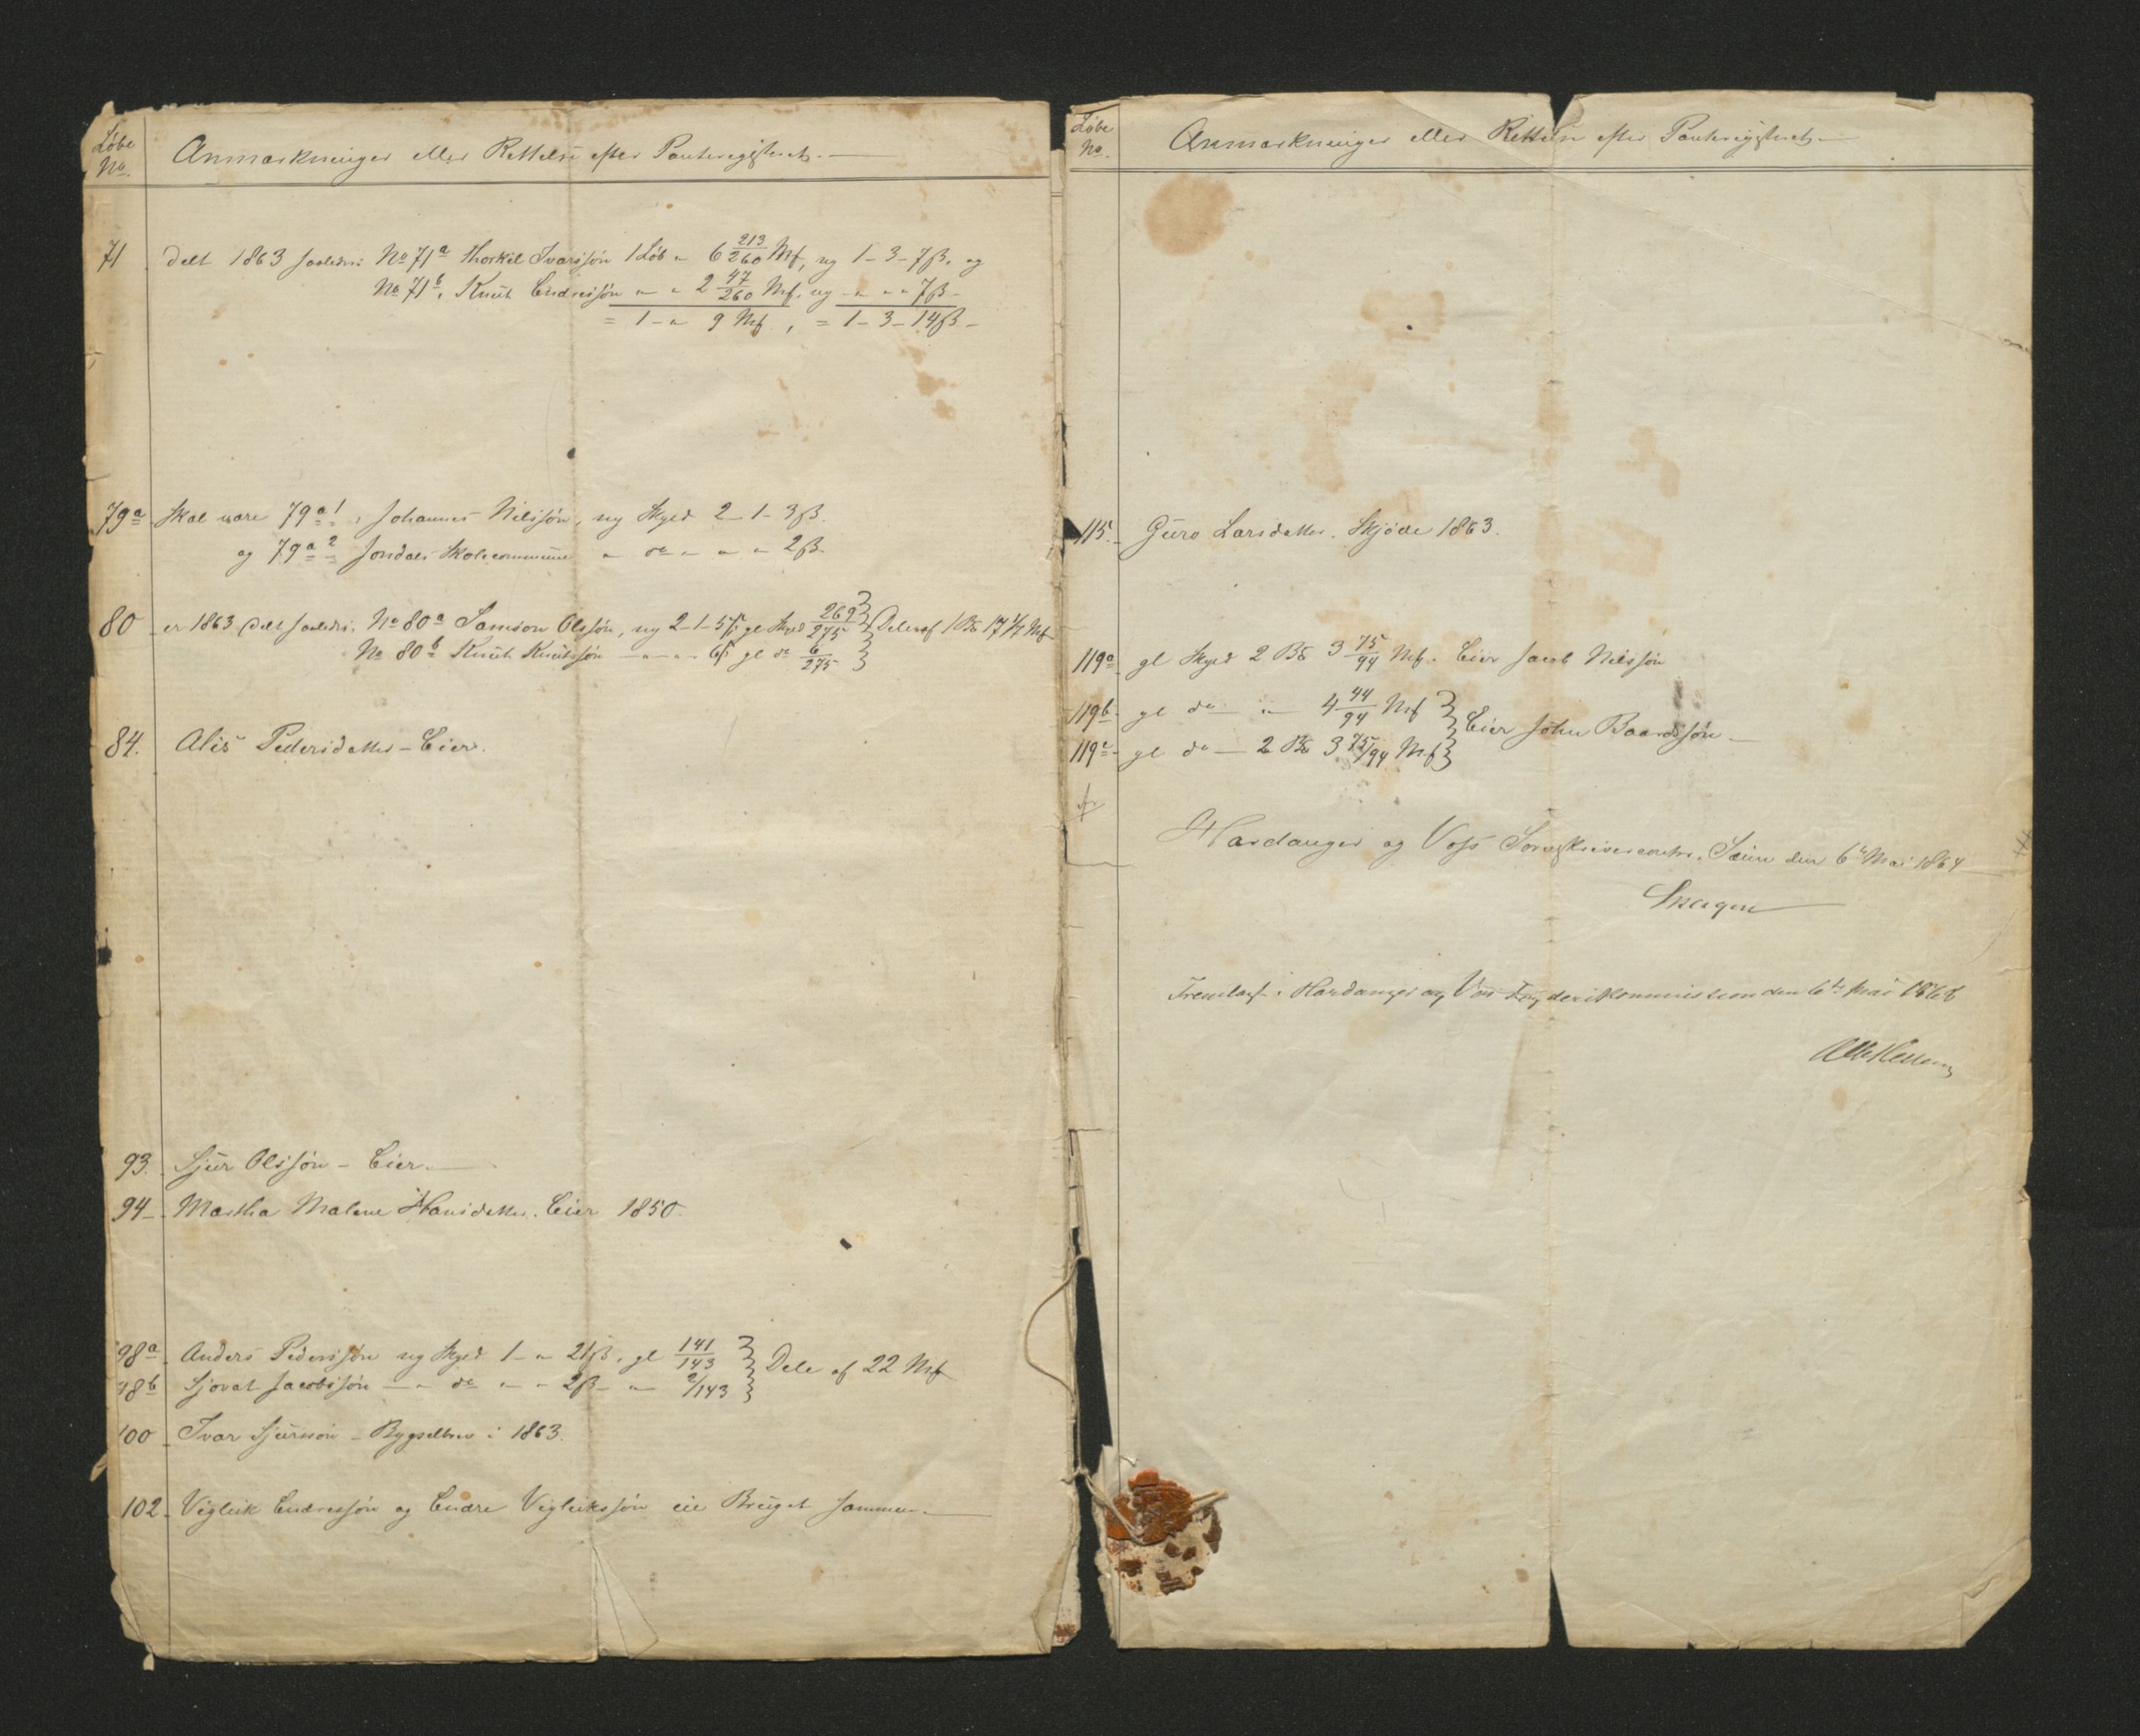 Løbe No. Anmærkninger eller Rettelse efter Panteregisteret.
71 Delt 1863 saaledes: No 71a Thorkel Ivarssøn 1 Løb " 6 213/260 Mrk, ny 1-3-7 ß. og
No 71b, Knut Endressøn " " 2 47/260 Mrk. ny " " 7 ß
= 1 - " 9 Mrk., = 1-3-14 ß
79a Skal være 79a1, Johannes Nilssøn, ny Skyld 2-1-3 ß.
og 79a2 Jondals Skolecommune " do " " " 2 ß.
80 er 1863 delt saaledes: No 80a Samson Olssøn, ny 2-1-5 ß gl Skyld 269/275 } Dele af 1 17 1/7 Mrk
No 80b Knut Knutssøn " " 6 ß gl do 6/275 }
84. Alis Pedersdatter - Eier.
93. Sjur Olssøn - Eier.
94 Martha Malene Hansdatter. Eier 1850.
98a Anders Pederssøn ny Skyld 1 - " 21 ß, gl 141/143 } Dele af 22 Mrk
98b Sjovat Jacobssøn " do " " 2 ß " 2/143 }
100 Ivar Sjurssøn - Bygselbrev i 1863.
102 Vigleik Endressøn og Endre Vigleikssøn eie Bruget sammen.
Løbe No. Anmærkninger eller Rettelse efter Panteregisteret.
115. Guro Larsdatter. Skjøde 1863.
119a gl Skyld 2 3 75/94 Mrk. Eier Jacob Nilssøn
119b gl do " 4 44/94 Mrk } Eier John Baardssøn
119c gl do 2 3 75/94 Mrk }
Hardanger og Voss Sorenskrivercontor, den 6te Mai 1864
Fremlagt i Hardanger og Voss Fogderikommission den 6te Mai